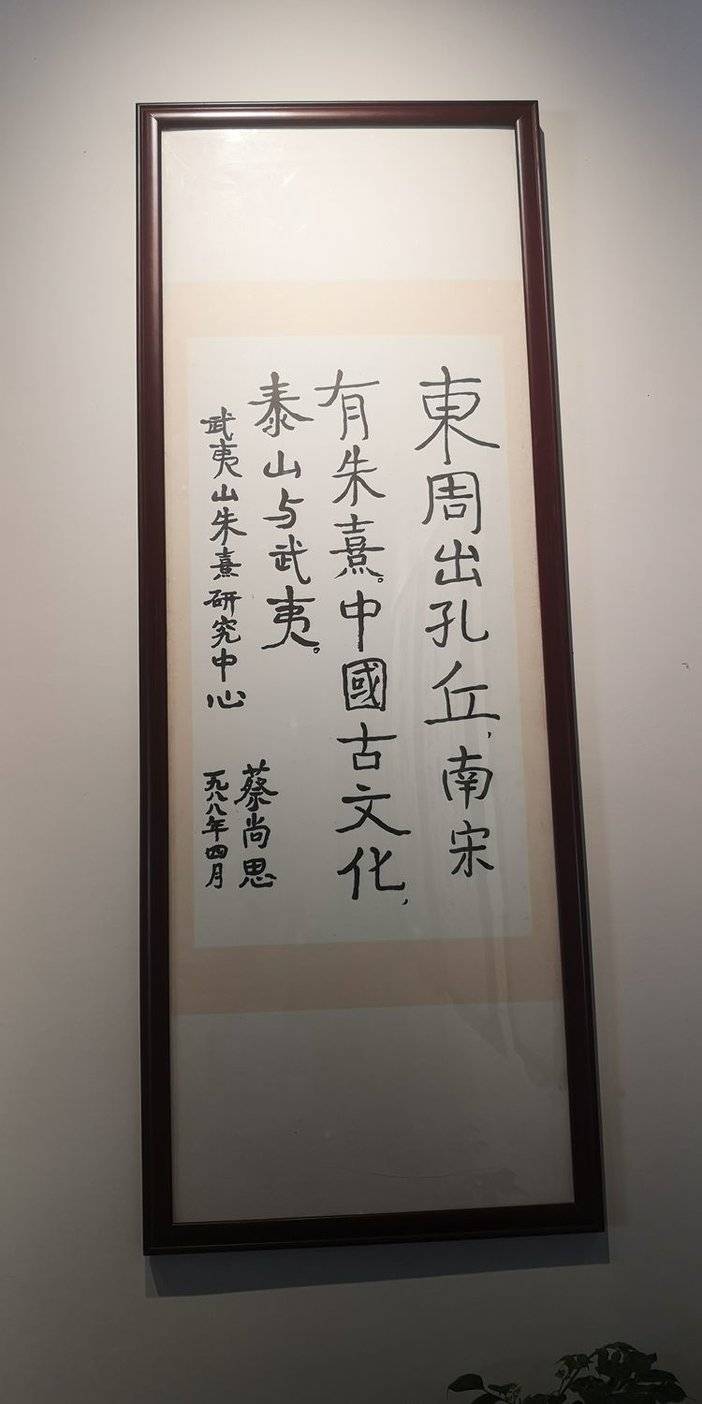 東周出孔丘，南宋
有朱熹。中國古文化，
泰山与武夷。
武夷山朱熹研究中心
蔡尚思
一九八八年四月